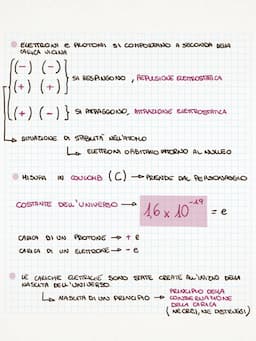 ELETTRONI E PROTONI SI COMPORTANO A SECONDA DELLA
CARICA VICINA
(-) (-)
(+) (+)
SI RESPINGONO, REPULSIONE ELETTROSTATICA
(+) (-) SI ATTRAGGONO, ATTRAZIONE ELETTROSTATICA
SITUAZIONE DI STABILITÀ NELL'ATOMO
ELETTRONI ORBITANO INTORNO AL NUCLEO
MISURA IN COULOMB (C) → PRENDE DAL PERSONAGGIO
COSTANTE DELL'UNIVERSO → 1,6 x 10⁻¹⁹ = e
CARICA DI UN PROTONE → + e
CARICA DI UN ELETTRONE → - e
LE CARICHE ELETTRICHE SONO STATE CREATE ALL'INIZIO DELLA
NASCITA DELL'UNIVERSO
NASCITA DI UN PRINCIPIO → PRINCIPIO DELLA
CONSERVAZIONE
DELLA CARICA
(NE CREI, NE DISTRUGGI)